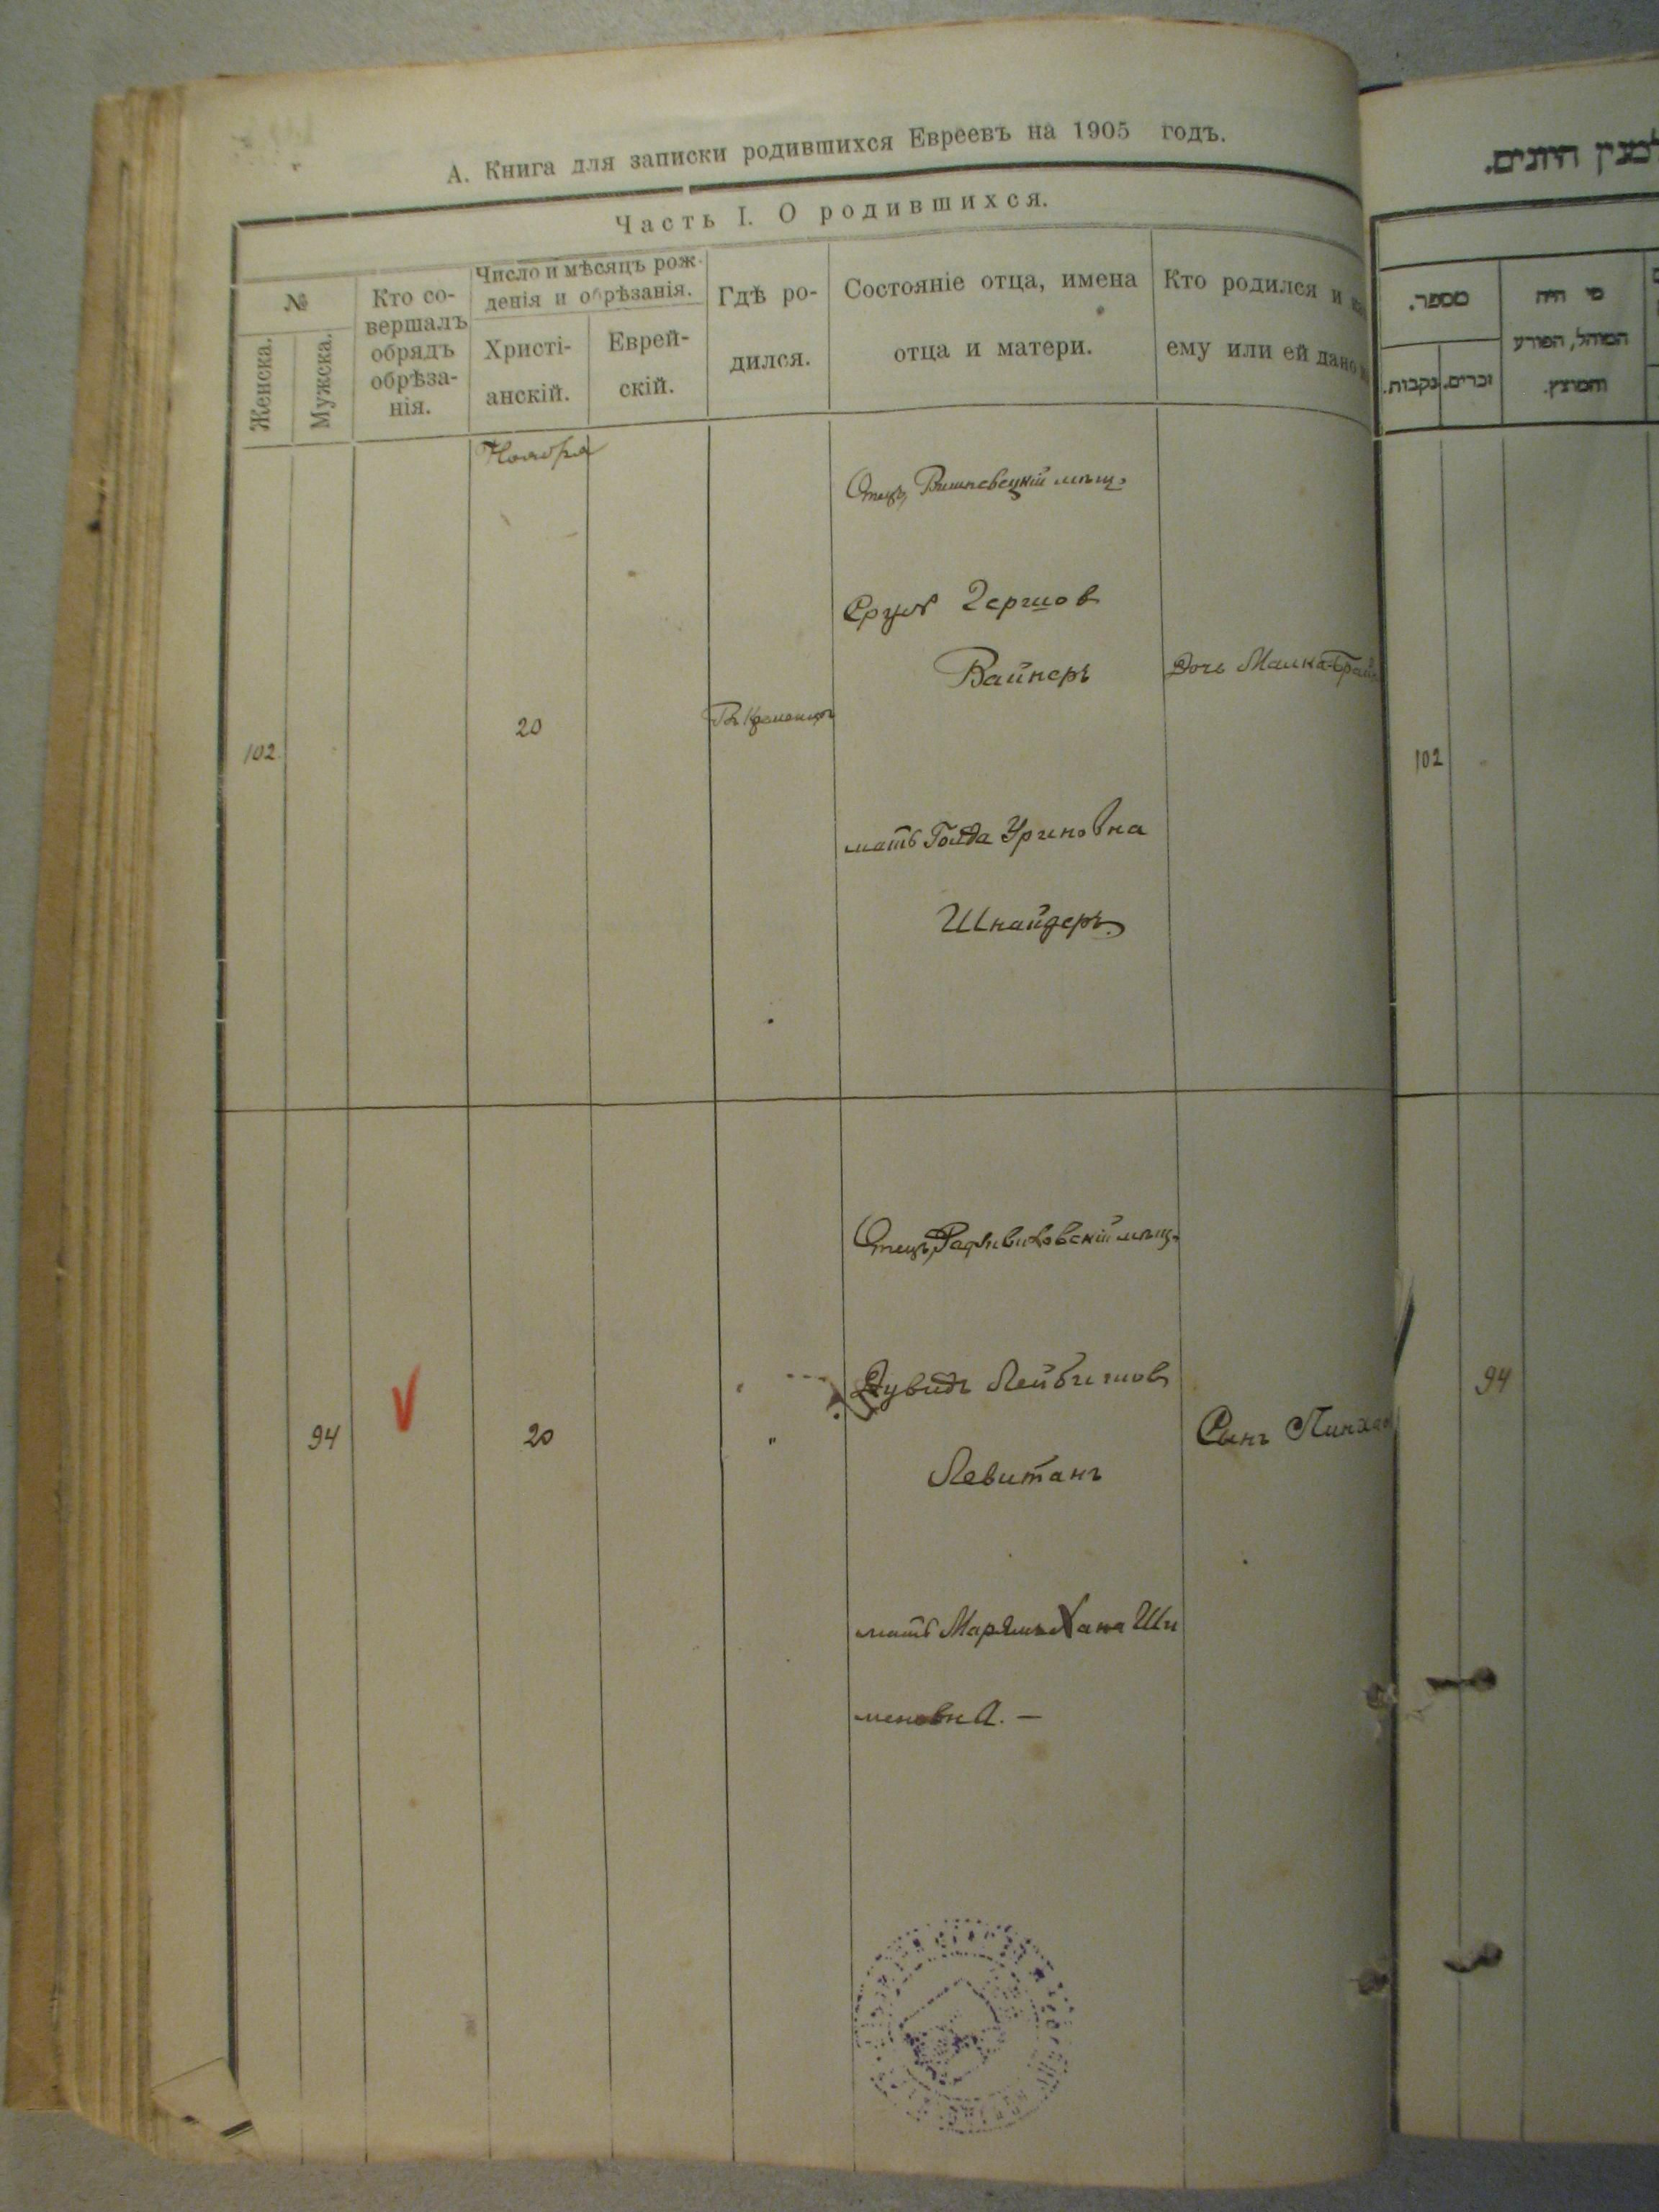 А. Книга для записки родившихся Евреевъ на 1905 годъ.
Часть I. О родившихся.
№
Женска.
Мужска.
Кто со-
вершалъ
обрядъ
обрѣза-
нія.
Число и мѣсяцъ рож-
денія и обрѣзанія.
Христі-
анскій.
Еврей-
скій.
Гдѣ ро-
дился.
Состояніе отца, имена
отца и матери.
Кто родился и
ему или ей дано
Ноября
102
20
Въ Кременцѣ
Отецъ, Вишневецкій мѣщ.
Сруль Гершов
Вайнеръ
мать Голда Уриновна
Шнайдеръ.
Дочь Малка-
94
20
"
Отецъ, Радзивиловскій мѣщ.
Дувидъ Лейбишов
Левитанъ
мать Марьямъ Хана Ши
меновна. —
Сынъ Пинхас
היונים.
מספר.
זכרים.
נקבות.
מי היה
המוהל, הפורע
והמוצץ.
102
94